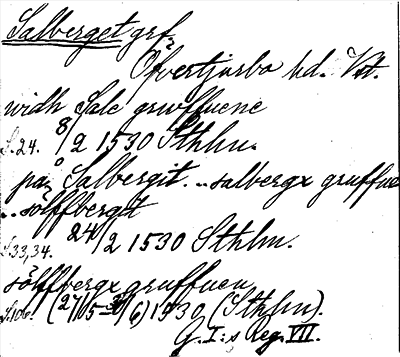 Salberget grf.
Öfvertjurbo hd. Vst.
widh Sale grwffuene
S.24. 8/2 1530 Sthlm.
på Salbergit... salbergx gruffue
... sölffbergit
S.33,34. 24/2 1530 Sthlm.
sölffbergx gruffuen
S.106. (27/5-30/6) 1530 (Sthlm).
G. I:s Reg. VII.